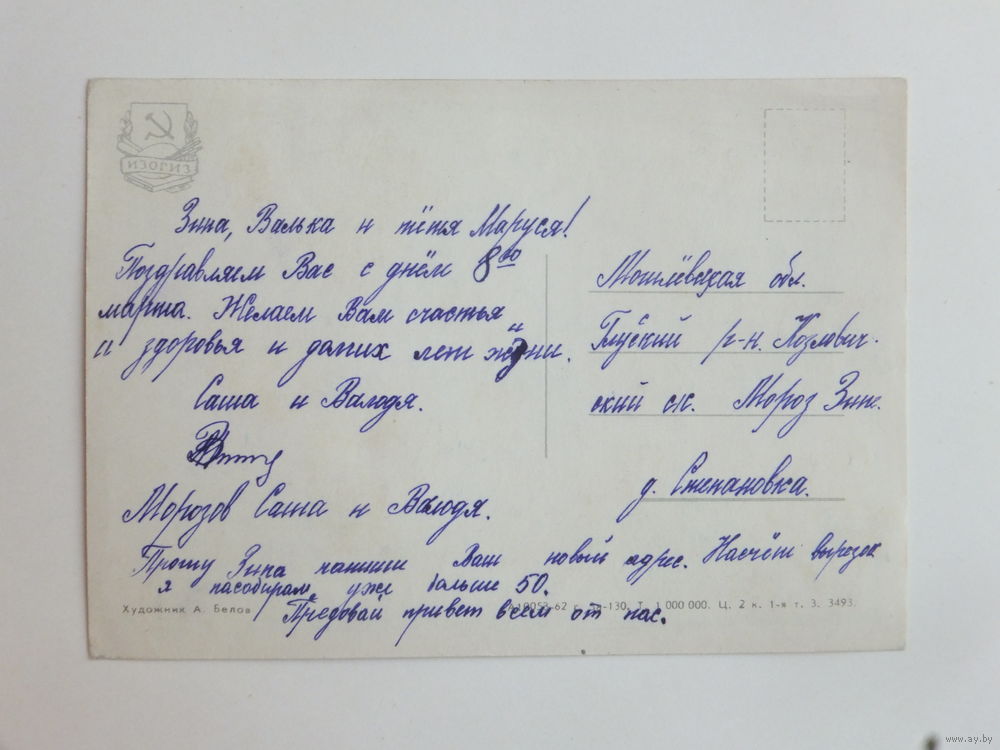 ИЗОГИЗ
Зина, Валька и тётя Маруся!
Поздравляем Вас с днём 8го
марта. Желаем Вам счастья
и здоровья и долгих лет жизни.
Саша и Валодя.
Морозов Саша и Валодя.
Прошу Зина напиши Ваш новый адрес. Насчёт вырезок
я насобирал уже больше 50.
Предовай привет всем от нас.
Могилёвская обл.
Глусский р-н. Козлович-
ский с/с. Мороз Зине.
д. Степановка.
Художник А. Белов
62 г. 130. Т. 1 000 000. Ц. 2 к. 1-я т. З. 3493.
www.ay.by